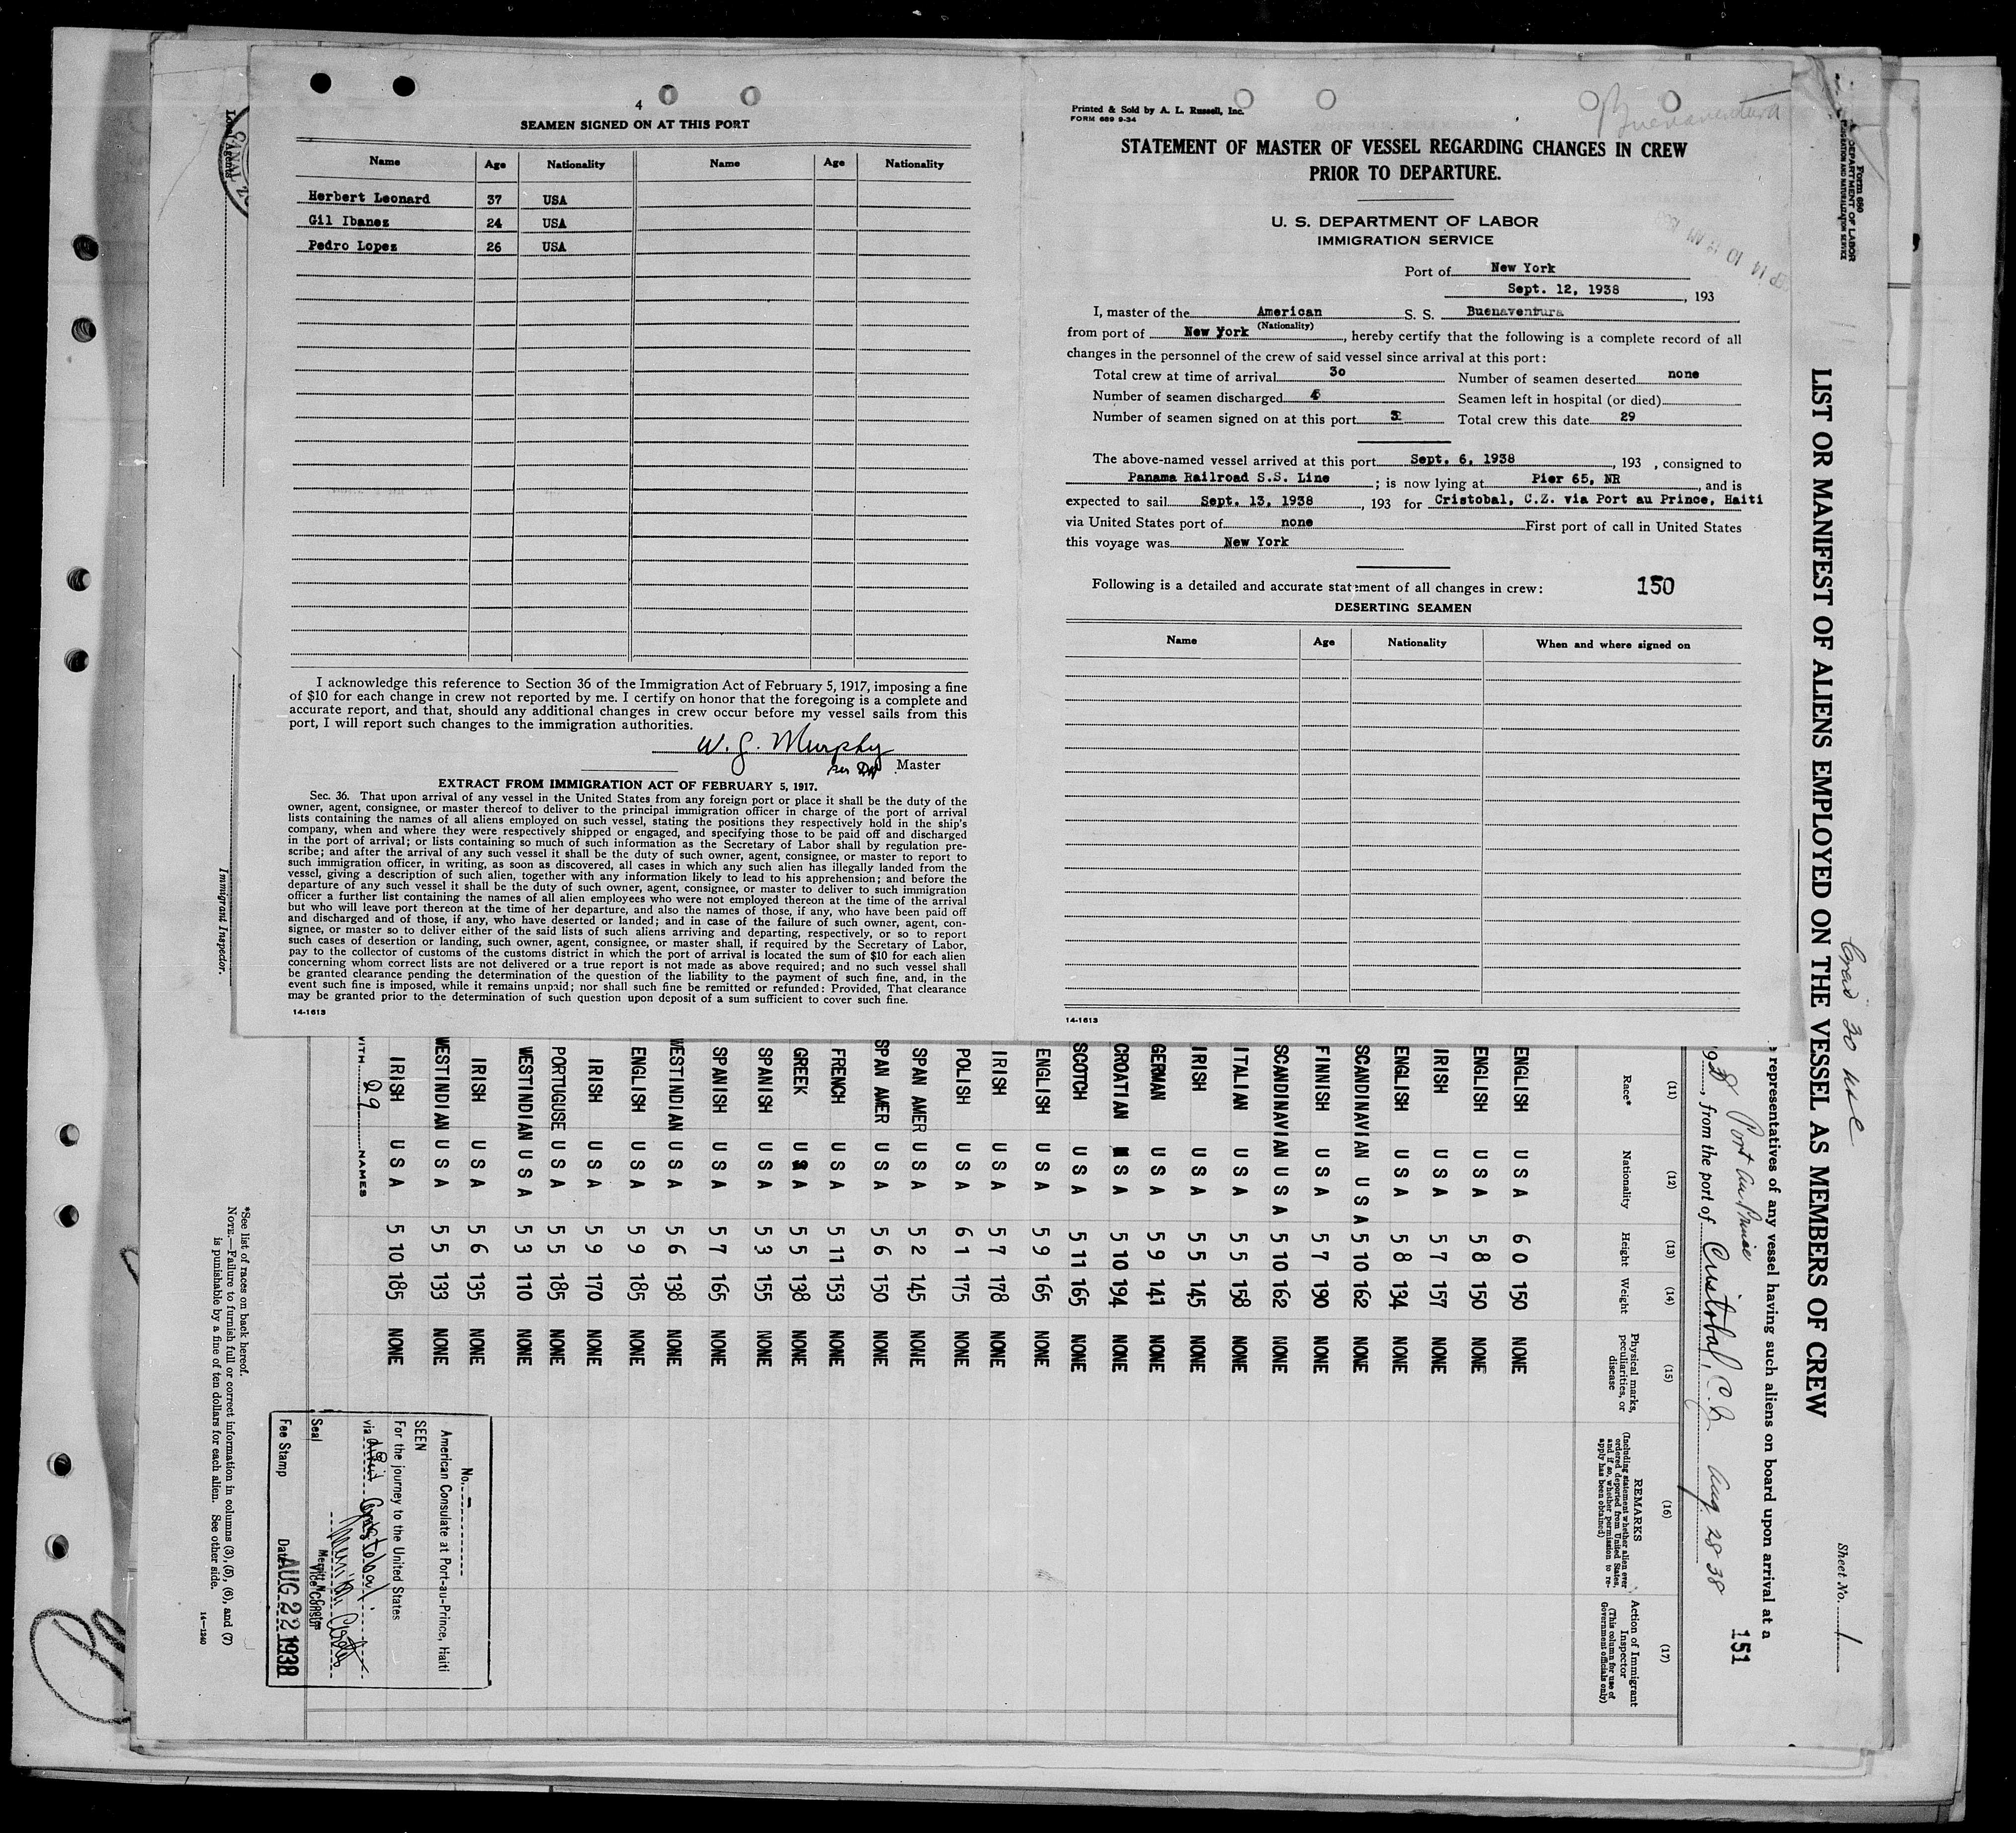 4
SEAMEN SIGNED ON AT THIS PORT
Name Age Nationality Name Age Nationality
Herbert Leonard 37 USA
Gil Ibanez 24 USA
Pedro Lopez 26 USA
I acknowledge this reference to Section 36 of the Immigration Act of February 5, 1917, imposing a fine
of $10 for each change in crew not reported by me. I certify on honor that the foregoing is a complete and
accurate report, and that, should any additional changes in crew occur before my vessel sails from this
port, I will report such changes to the immigration authorities.
W. J. Murphy
Master
EXTRACT FROM IMMIGRATION ACT OF FEBRUARY 5, 1917.
Sec. 36. That upon arrival of any vessel in the United States from any foreign port or place it shall be the duty of the
owner, agent, consignee, or master thereof to deliver to the principal immigration officer in charge of the port of arrival
lists containing the names of all aliens employed on such vessel, stating the positions they respectively hold in the ship's
company, when and where they were respectively shipped or engaged, and specifying those to be paid off and discharged
in the port of arrival; or lists containing so much of such information as the Secretary of Labor shall by regulation pre-
scribe; and after the arrival of any such vessel it shall be the duty of such owner, agent, consignee, or master to report to
such immigration officer, in writing, as soon as discovered, all cases in which any such alien has illegally landed from the
vessel, giving a description of such alien, together with any information likely to lead to his apprehension; and before the
departure of any such vessel it shall be the duty of such owner, agent, consignee, or master to deliver to such immigration
officer a further list containing the names of all alien employees who were not employed thereon at the time of the arrival
but who will leave port thereon at the time of her departure, and also the names of those, if any, who have been paid off
and discharged and of those, if any, who have deserted or landed; and in case of the failure of such owner, agent, con-
signee, or master so to deliver either of the said lists of such aliens arriving and departing, respectively, or so to report
such cases of desertion or landing, such owner, agent, consignee, or master shall, if required by the Secretary of Labor,
pay to the collector of customs of the customs district in which the port of arrival is located the sum of $10 for each alien
concerning whom correct lists are not delivered or a true report is not made as above required; and no such vessel shall
be granted clearance pending the determination of the question of the liability to the payment of such fine, and, in the
event such fine is imposed, while it remains unpaid; nor shall such fine be remitted or refunded: Provided, That clearance
may be granted prior to the determination of such question upon deposit of a sum sufficient to cover such fine.
14-1613
Printed & Sold by A. L. Russell, Inc.
FORM 689 9-34
Buenaventura
STATEMENT OF MASTER OF VESSEL REGARDING CHANGES IN CREW
PRIOR TO DEPARTURE.
U. S. DEPARTMENT OF LABOR
IMMIGRATION SERVICE
Port of New York
Sept. 12, 1938, 193
I, master of the American S. S. Buenaventura
(Nationality)
from port of New york, hereby certify that the following is a complete record of all
changes in the personnel of the crew of said vessel since arrival at this port:
Total crew at time of arrival 30 Number of seamen deserted none
Number of seamen discharged Seamen left in hospital (or died)
Number of seamen signed on at this port 3 Total crew this date 29
The above-named vessel arrived at this port Sept. 6, 1938, 193 , consigned to
Panama Railroad S.S. Line; is now lying at Pier 65, NR, and is
expected to sail Sept. 13, 1938, 193 for Cristobal, C.Z. via Port au Prince, Haiti
via United States port of none First port of call in United States
this voyage was New York
Following is a detailed and accurate statement of all changes in crew: 150
DESERTING SEAMEN
Name Age Nationality When and where signed on
14-1613
Form 680
DEPARTMENT OF LABOR
IMMIGRATION AND NATURALIZATION SERVICE
Sheet No. 1
LIST OR MANIFEST OF ALIENS EMPLOYED ON THE VESSEL AS MEMBERS OF CREW
representatives of any vessel having such aliens on board upon arrival at a
Port au Prince
from the port of Cristobal, C.Z. Aug 28 38
151
(11) (12) (13) (14) (15) (16) (17)
Race* Nationality Height Weight Physical marks, peculiarities, or disease REMARKS (Including statement whether alien ever ordered deported from United States, and if so, whether permission to re-apply has been obtained) Action of Immigrant Inspector (This column for use of Government officials only)
ENGLISH U S A 6 0 150 NONE
ENGLISH U S A 5 8 150 NONE
IRISH U S A 5 7 157 NONE
ENGLISH U S A 5 8 134 NONE
SCANDINAVIAN U S A 5 10 162 NONE
FINNISH U S A 5 7 190 NONE
SCANDINAVIAN U S A 5 10 162 NONE
ITALIAN U S A 5 5 158 NONE
IRISH U S A 5 5 145 NONE
GERMAN U S A 5 9 141 NONE
CROATIAN U S A 5 10 194 NONE
SCOTCH U S A 5 11 165 NONE
ENGLISH U S A 5 9 165 NONE
IRISH U S A 5 7 178 NONE
POLISH U S A 6 1 175 NONE
SPAN AMER U S A 5 2 145 NONE
SPAN AMER U S A 5 6 150 NONE
FRENCH U S A 5 11 153 NONE
GREEK U S A 5 5 138 NONE
SPANISH U S A 5 3 155 NONE
SPANISH U S A 5 7 165 NONE
WESTINDIAN U S A 5 6 138 NONE
ENGLISH U S A 5 9 185 NONE
IRISH U S A 5 9 170 NONE
PORTUGUSE U S A 5 5 185 NONE
WESTINDIAN U S A 5 3 110 NONE
IRISH U S A 5 6 135 NONE
WESTINDIAN U S A 5 5 133 NONE
IRISH U S A 5 10 185 NONE
WITH 29 NAMES
No.
American Consulate at Port-au-Prince, Haiti
SEEN
For the journey to the United States
via Cristobal
Vice Consul
Seal
Fee Stamp Date AUG 22 1938
*See list of races on back hereof.
NOTE.—Failure to furnish full or correct information in columns (3), (5), (6), and (7)
is punishable by a fine of ten dollars for each alien. See other side.
14-1240
Immigrant Inspector.
Local Agents
CANAL Z